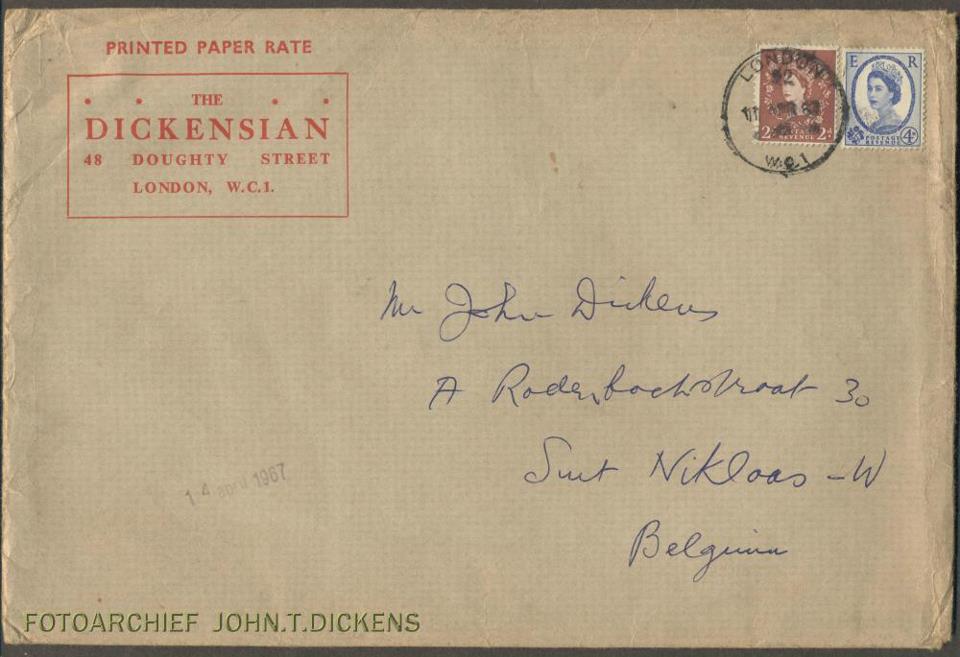 PRINTED PAPER RATE
THE
DICKENSIAN
48 DOUGHTY STREET
LONDON, W.C.1.
LONDON
W.C.1
2D POSTAGE REVENUE 2D
E R
POSTAGE REVENUE 4D
Mr John Dickens
A Rodenbachstraat 30
Sint Niklaas - W
Belgium
14 april 1967
FOTOARCHIEF JOHN.T.DICKENS